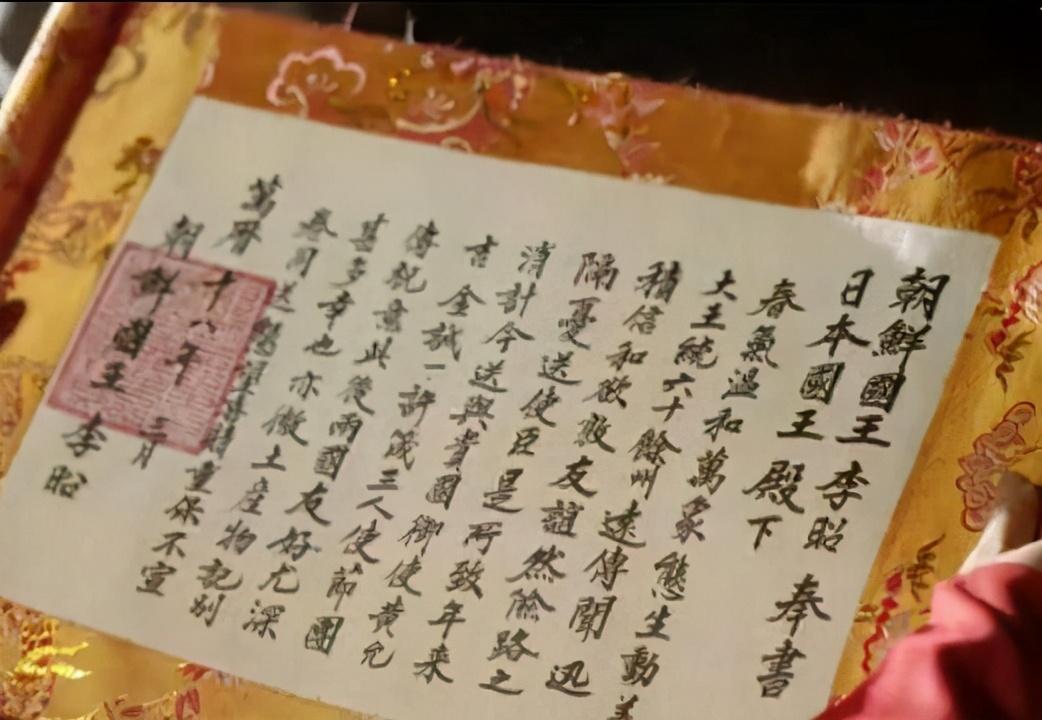 朝鮮國王 李昭 奉書
日本國王 殿下
春氣溫和萬象態生動美
大王統六十餘州遠傳聞迅
稱信和欲友誼然險路之
隔憂送使臣是所致年來
消計今送與貴國御使黃允
吉全誠一許筬三人使節團
傳祝意此後兩國友好尤深
甚多幸也亦微土產物記別
同送重保不宣
萬曆十八年 三月
朝鮮國王 李昭